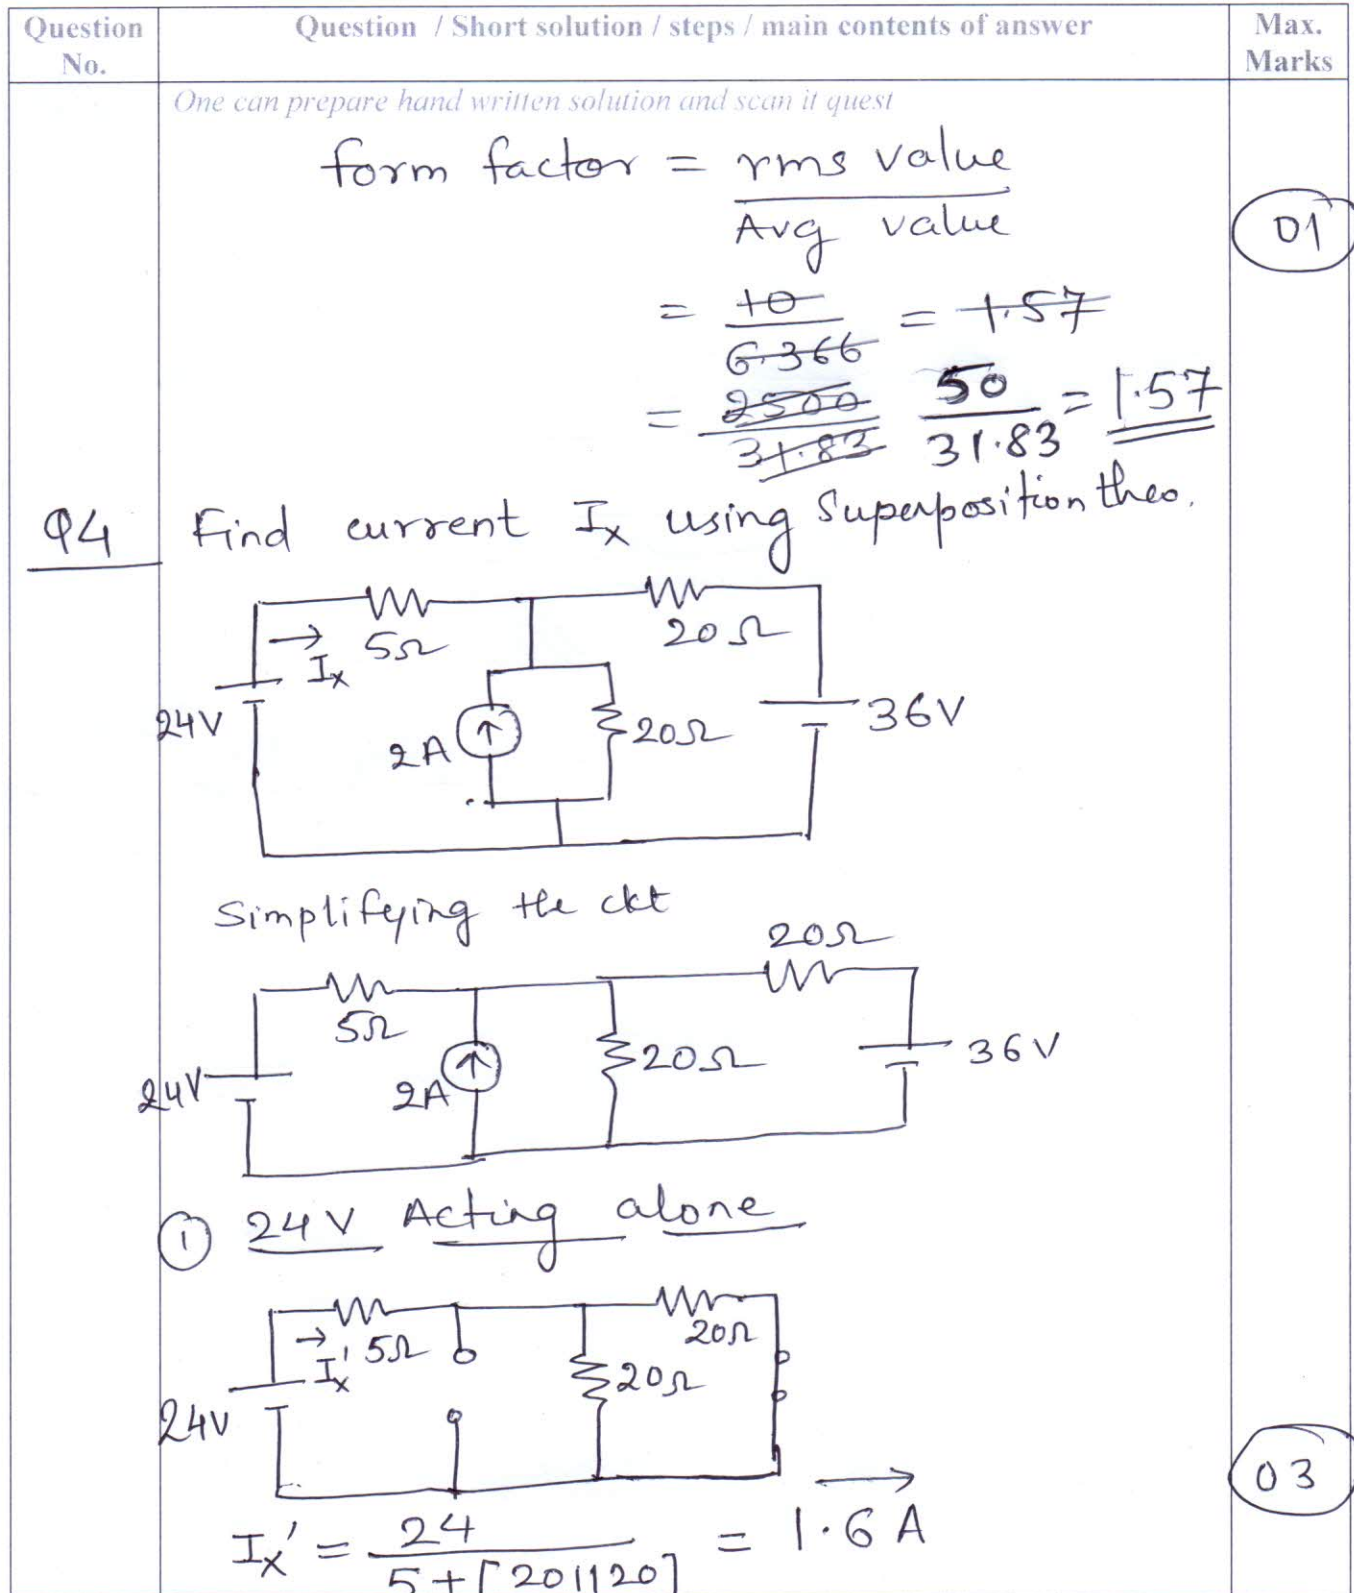 Question No.
Question / Short solution / steps / main contents of answer
Max. Marks
One can prepare hand written solution and scan it quest
form factor = rms value / Avg value
01
= 10 / 6.366 = 1.57
= 2500 / 31.83 50 / 31.83 = 1.57
Q4 Find current Ix using Superposition theo.
5Ω
20Ω
Ix
24V
2A
20Ω
36V
Simplifying the ckt
20Ω
5Ω
24V
2A
20Ω
36V
① 24V Acting alone
Ix' 5Ω
20Ω
20Ω
24V
03
Ix' = 24 / 5+[20||20] = 1.6 A